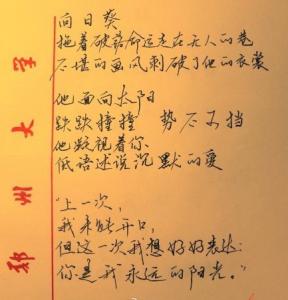 向日葵
拖着破铬命运走在无人的巷
不堪的画风刺破了他的衣裳
他面向太阳
跌跌撞撞 势不可挡
他凝视着你
低语述说沉默的爱
"上一次,
我未能开口,
但这一次我想好好表达:
你是我永远的阳光。"
郑州大学